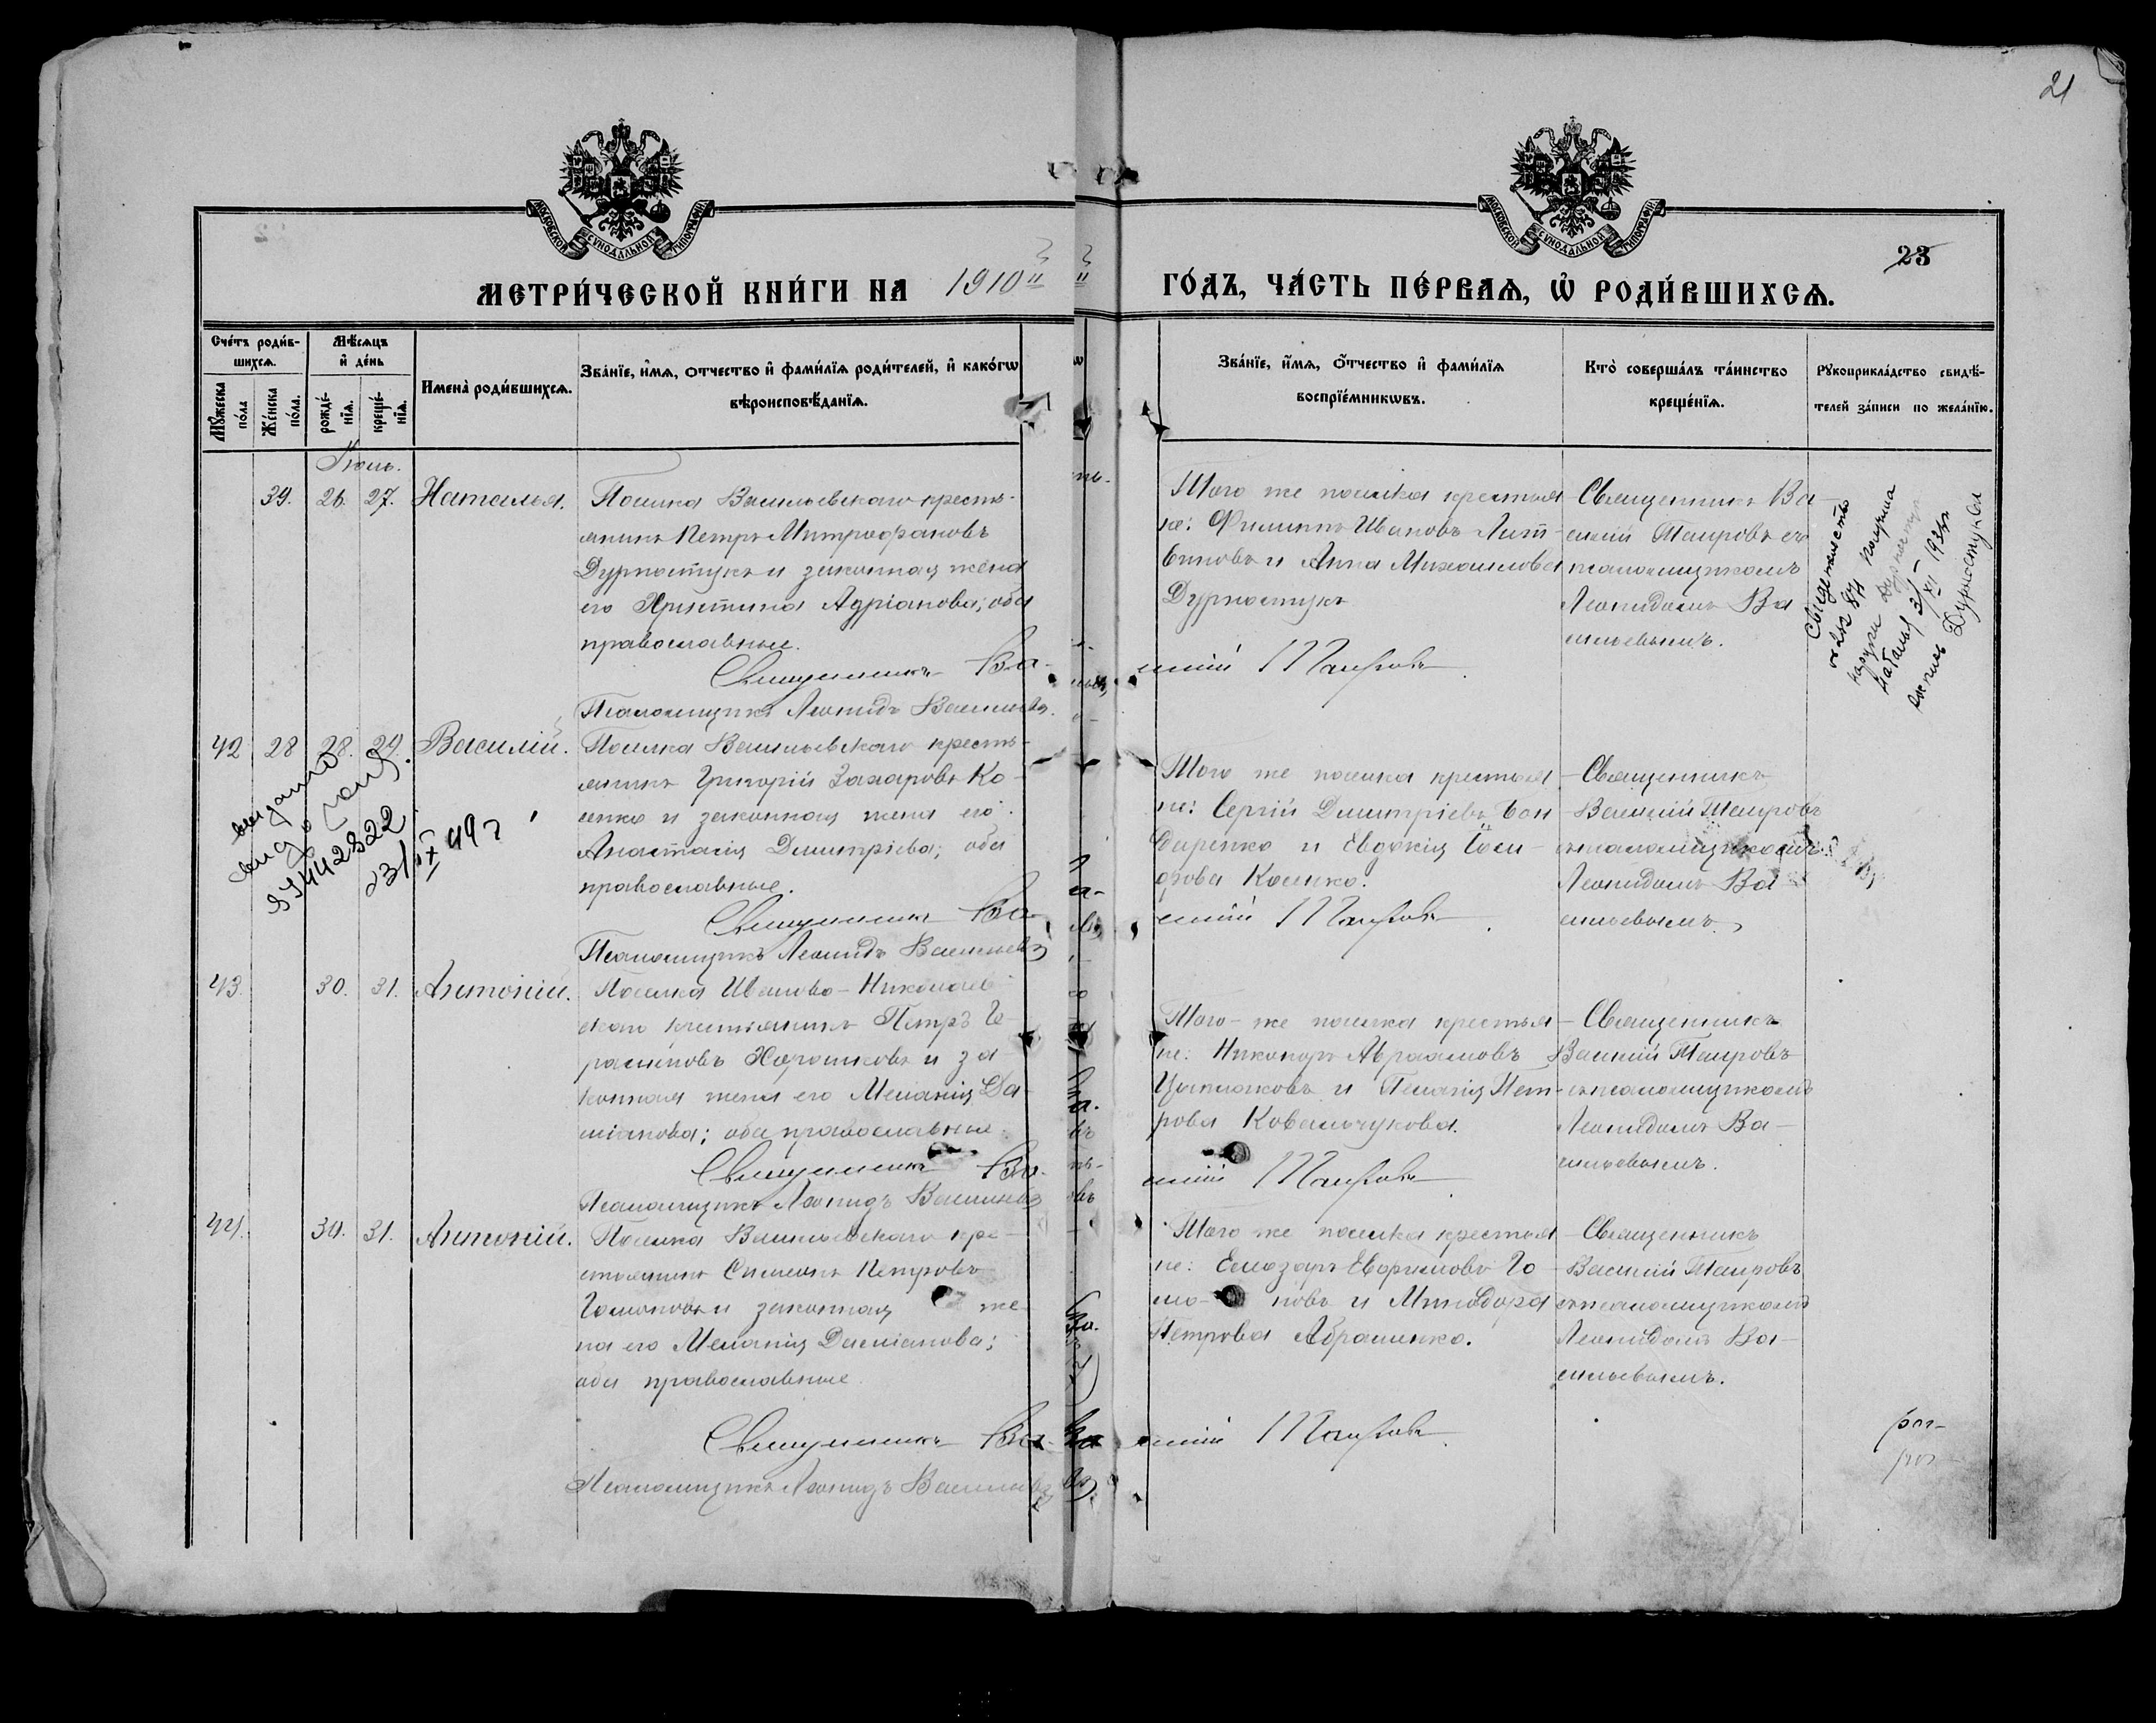 21
МОСКОВСКОЙ СУНОДАЛЬНОЙ ТИПОГРАФІИ
МОСКОВСКОЙ СУНОДАЛЬНОЙ ТИПОГРАФІИ
23
МЕТРИ́ЧЕСКОЙ КНИ́ГИ НА 1910й
ГО́ДЪ, ЧА́СТЬ ПЕ́РВАѦ, Ѡ҆ РОДИ́ВШИХСѦ.
Сче́тъ роди́в-
шихсѧ.
Мꙋ́жеска
по́ла
Же́нска
по́ла.
Мѣ́сѧцъ
и҆ де́нь
рожде́-
нїѧ.
креще́-
нїѧ.
Имена̀ роди́вшихсѧ.
Зва́нїе, и҆́мѧ, ѻ҆́тчество и҆ фами́лїѧ роди́телей, и҆ како́гѡ
вѣроисповѣ́данїѧ.
Зва́нїе, и҆́мѧ, ѻ҆́тчество и҆ фами́лїѧ
воспрїе́мникѡвъ.
Кто̀ соверша́лъ та́инство
креще́нїѧ.
Рꙋкоприкла́дство свидѣ́-
телей за́писи по жела́нїю.
Іюль.
39. 26. 27. Наталья.
Поселка Васильевскаго кресть-
янинъ Петръ Митрофановъ
Дурностукъ и законная жена
его Христина Адріанова; оба
православные.
Священникъ Ва-
силій Таировъ
Псаломщикъ Леонидъ Васильевъ.
Того же поселка крестья-
не: Филиппъ Ивановъ Лит-
виновъ и Анна Михаилова
Дурностукъ
Священникъ Ва-
силій Таировъ съ
псаломщикомъ
Леонидомъ Ва
сильевымъ.
Свидетельство
получила
1934
Дурностукова
42 28 28. 29. Василій.
выдано
442822
31/IX 49 г
Поселка Васильевскаго кресть-
янинъ Григорій Захаровъ Ко-
сенко и законная жена его
Анастасія Димитріева; оба
православные.
Священникъ Ва-
силій Таировъ
Псаломщикъ Леонидъ Васильевъ
Того же поселка крестья-
не: Сергій Димитріевъ Бон
даренко и Евдокія
Косенко.
Священникъ
Василій Таировъ
съ псаломщикомъ
Леонидомъ Ва
сильевымъ.
43. 30. 31. Антоній.
Поселка Иваново-Николаев
скаго крестьянинъ Петръ Ге-
расимовъ Хорошковъ и за
конная жена его Меланія Да-
міанова; оба православные.
Священникъ Ва-
силій Таировъ
Псаломщикъ Леонидъ Васильевъ
Того-же поселка крестья-
не: Никаноръ Авраамовъ
и Пелагія Пет-
рова Ковальчукова.
Священникъ
Василій Таировъ
съ псаломщикомъ
Леонидомъ Ва-
сильевымъ.
44. 30. 31. Антоній.
Поселка Васильевскаго кре-
стьянинъ Симеонъ Петровъ
и законная же
на его Меланія Даміанова;
оба православные.
Священникъ Ва-
силій Таировъ
Псаломщикъ Леонидъ Васильевъ
Того же поселка крестья
не: Елеазаръ Ефримовъ Го
и Минодора
Петрова Абраменко.
Священникъ
Василій Таировъ
съ псаломщикомъ
Леонидомъ Ва-
сильевымъ.